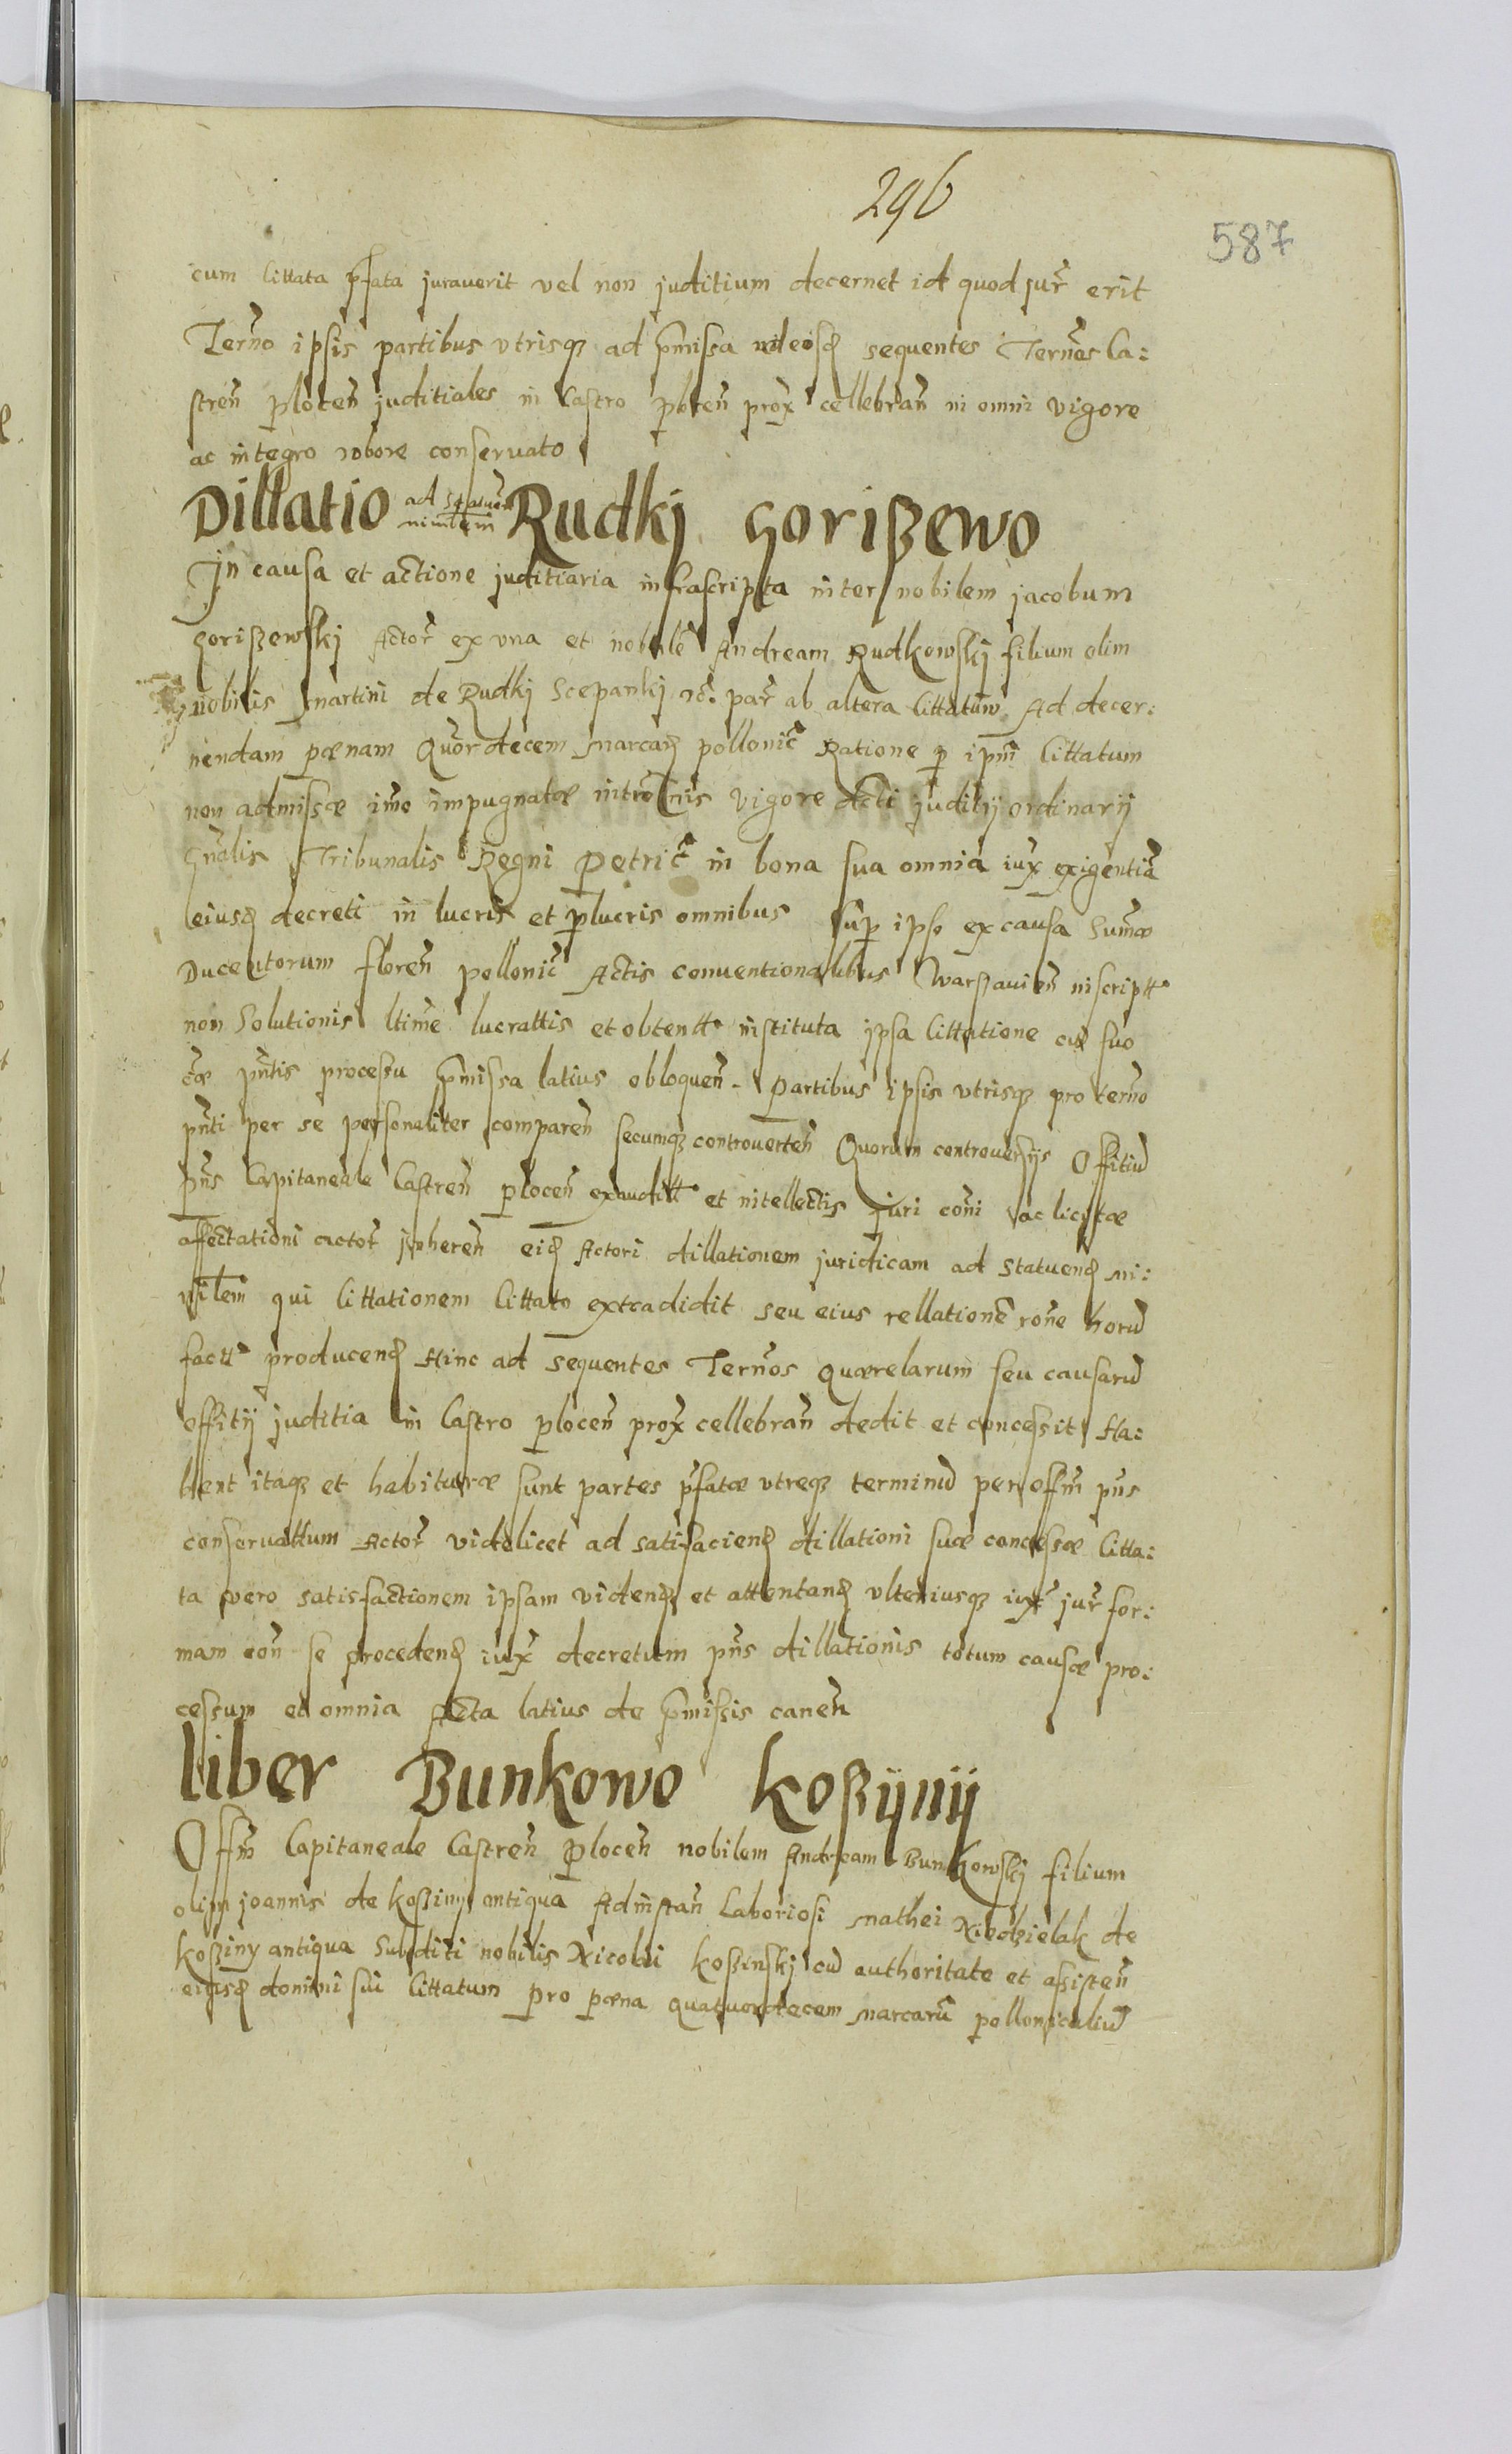 296
587
cum cittata p̃fata juraverit vel non juditium decernet id quod jur̃ erit
Termo ipsis partibus utrisqꝫ ad p̃missa sequentes Termos Ca:
stren̄ plocen̄ juditiales in Castro plocen̄ prox̃ cellebran̄ in omni vigore
ac integro robore conservato
Dillatio ad statuen̄ ministem Rudkj Gorißewo
In causa et actione juditiaria infrascripta inter nobilem jacobum
Gorißewskj Actor̃ ex una et nobilē Andream Rudkowskj filium olim
nobilis martini de Rudkj Scepankj par̃ ab altera cittatum Ad decer:
nendam pænam Quordecem marcarꝫ pollonic̃ Ratione p ipm̃ cittatum
non admissæ imo impugnatæ vigore decti juditij ordinarij
Gnãlis Tribunalis Regni Petric̃ in bona sua omnia iux̃ exigentiã
eiusdꝫ decreti in lucris et plucris omnibus sup ipso ex causa Sum̃æ
Ducentorum floren̄ pollonic̃ Actis conventionalibus Warßavien̄ inscriptt
non Solutionis ltime lucrattis et obtentt instituta ipsa cittatione cũ suo
cæ pñtis processu p̃missa latius obloquen̄. Partibus ipsis utrisqꝫ pro termo
pñti per se personaliter comparen̄ secumqꝫ controverten̄ Quorum controversijs Offitiũ
pñs Capitaneale Castren̄ plocen̄ exauditt et intellectis juri cõni ac licitæ
affectationi actor̃ inheren̄ eidꝫ Actori dillationem juridicam ad statuendꝫ mi:
nilem qui cittationem cittato extradidit seu eius rellationē rõne horũ
factt producendꝫ Hinc ad sequentes Termos Quærelarum seu causarũ
offitij juditia in Castro plocen̄ prox̃ cellebran̄ dedit et concessit Ha:
bent itaqꝫ et habituræ sunt partes p̃fatæ utreqꝫ terminũ per offm̃ pñs
conservattum Actor̃ videlicet ad satisfaciendꝫ dillationi suæ concessæ Citta:
ta vero satisfactionem ipsam videndꝫ et attentandꝫ ulteriusqꝫ iux̃ jur̃ for:
mam con̄ se procedendꝫ iux̃ decretum pñs dillationis totum causæ pro:
cessum et omnia Acta latius de p̃missis canen̄
liber Bunkowo Koßÿnÿ
Offm̃ Capitaneale Castren̄ plocen̄ nobilem Andream Bunkowskj filium
olim joannis de Koßiny antiqua Ad instan̄ Laboriosi Mathei Niedzielak de
Koßiny antiqua Subditi nobilis Nicolai Koßinskj cũ authoritate et aßisten̄
eiusdꝫ domini sui Cittatum pro pæna quatuordecem marcarũ polloniculiũ